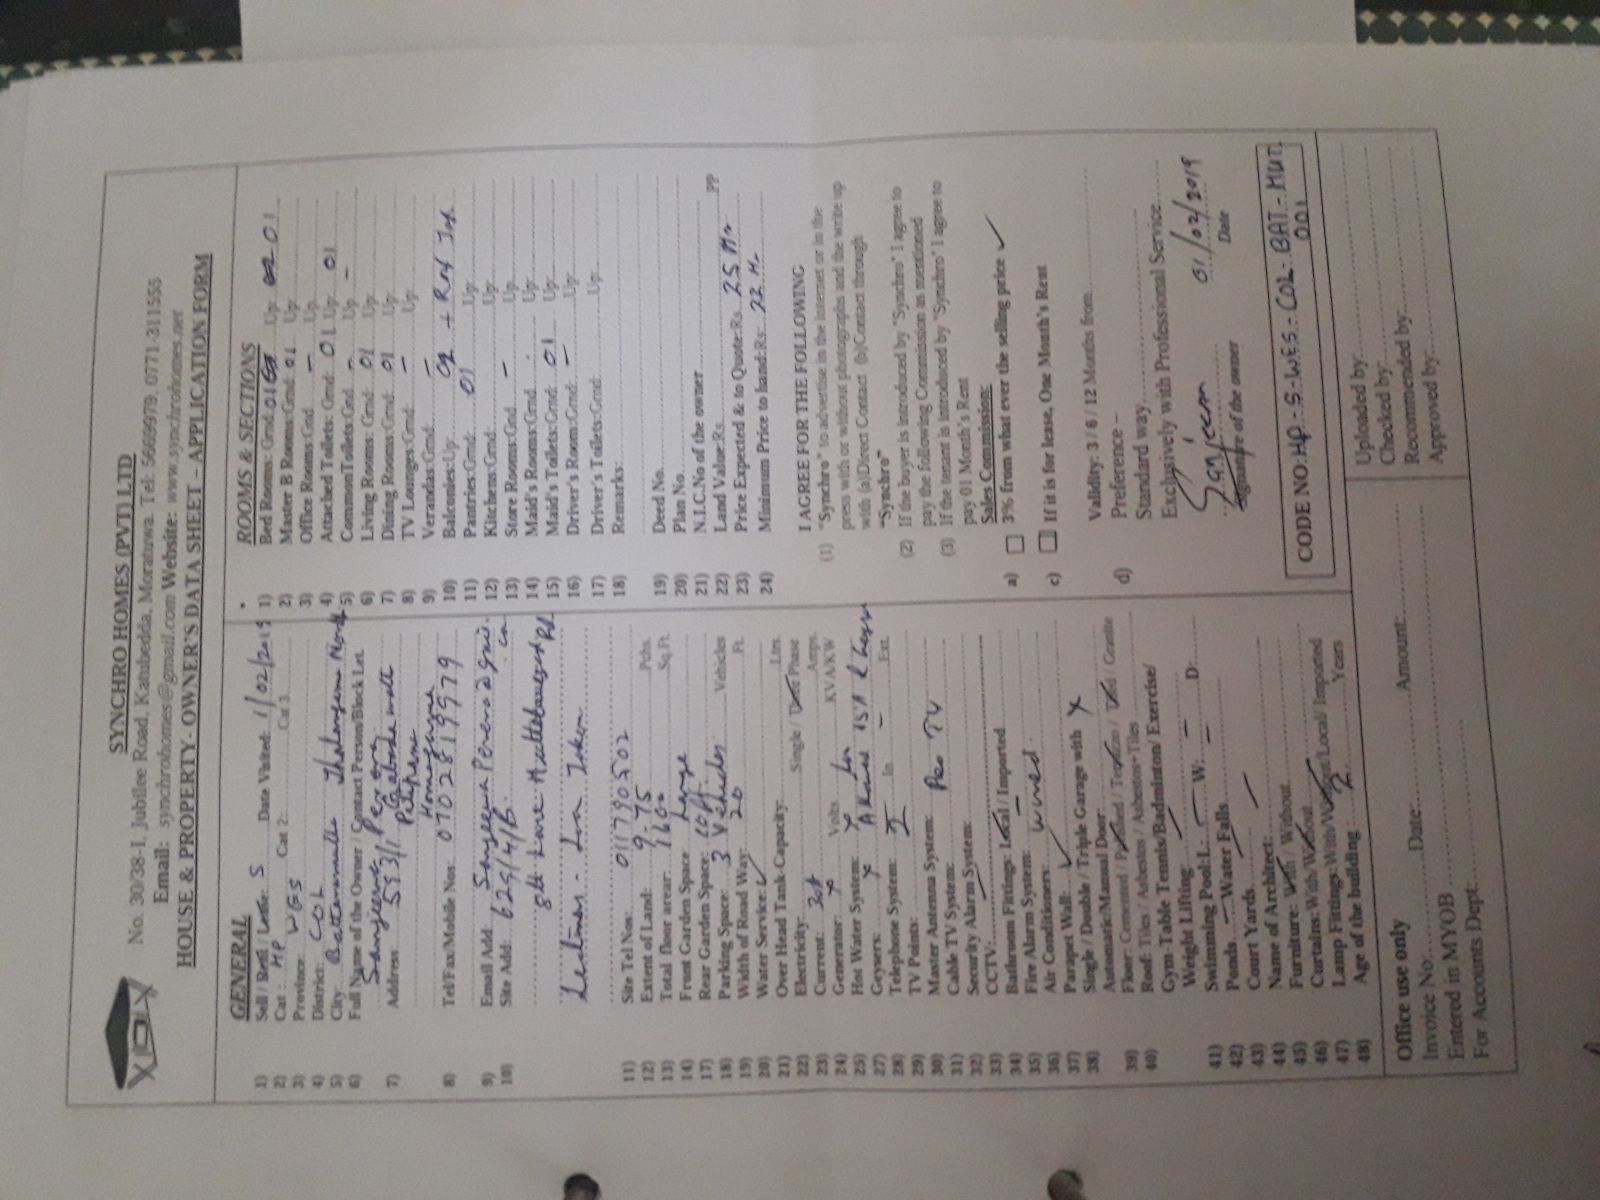 SYNCHRO HOMES (PVT) LTD
No. 30/38-1, Jubilee Road, Katubedda, Moratuwa. Tel: 5669979, 0771-311555
Email: synchrohomes@gmail.com Website: www.synchrohomes.net
HOUSE & PROPERTY- OWNER'S DATA SHEET – APPLICATION FORM
GENERAL
1) Sell / Rent / Lease: S Date Visited: 1/02/2019
2) Cat: HP Cat 2: Cat 3
3) Province WES
4) District: COL
5) City
6) Full Name of the Owner / Contact Person/Block Let.
Sanjeewa Perera
7) Address 593/1
8) Tel/Fax/Mobile Nos: 0702819979
9) Email Add:
10) Site Add: 629/4/B
8th Lane
11) Site Tel Nos: 011790502
12) Extent of Land: 9.75 Pchs.
13) Total floor arear: 1600 Sq.Ft.
14) Front Garden Space Large
17) Rear Garden Space: 10 ft
18) Parking Space: 3 Vehicles Vehicles
19) Width of Road Way: 20 Ft.
20) Water Service:
21) Over Head Tank-Capacity: Ltrs.
22) Electricity: Single / Phase
23) Current: Amps.
24) Generator: x Volts KVA/KW
25) Hot Water System:
27) Geysers: x
28) Telephone System: In. Ext.
29) TV Points:
30) Master Antenna System: TV
31) Cable TV System:
32) Security Alarm System:
33) CCTV:
34) Bathroom Fittings: Local / Imported
35) Fire Alarm System:
36) Air Conditioners: wired
37) Parapet Wall:
38) Single / Double / Triple Garage with X
Automatic/Manual Door:
39) Floor: Cemented / Polished / Terrazzo / Tiled / Granite
40) Roof: Tiles / Asbestos / Asbestos+Tiles
Gym-Table Tennis/Badminton/ Exercise/
Weight Lifting:
41) Swimming Pool: L: W: D:
42) Ponds Water Falls
43) Court Yards
44) Name of Architect:
45) Furniture: With / Without
46) Curtains: With/Without
47) Lamp Fittings: With/Without/Local/ Imported
48) Age of the building : 2 Years
ROOMS & SECTIONS
1) Bed Rooms: Grnd: 01 Up: 01
2) Master B Rooms:Grnd: 01 Up:
3) Office Rooms:Gnd – Up:
4) Attached Toilets: Grnd: 01 Up: 01
5) CommonToilets:Gnd. – Up: –
6) Living Rooms: Grnd: 01 Up:
7) Dining Rooms:Grnd: 01 Up:
8) TV Lounges:Grnd: – Up:
9) Verandas:Grnd: –
10) Balconies:Up: 02 +
11) Pantries:Grnd: 01 Up:
12) Kitchens:Grnd: Up:
13) Store Rooms:Gnd – Up:
14) Maid's Rooms:Grnd: Up:
15) Maid's Toilets:Grnd: 01 Up:
16) Driver's Room:Grnd – Up:
17) Driver's Toilets:Grnd: Up:
18) Remarks:
19) Deed No.
20) Plan No.
21) N.I.C.No of the owner
22) Land Value:Rs. PP
23) Price Expected & to Quote:Rs. 25 Mn
24) Minimum Price to hand:Rs: 22 Mn
I AGREE FOR THE FOLLOWING
(1) "Synchro" to advertise in the internet or in the
press with or without photographs and the write up
with (a)Direct Contact (b)Contact through
"Synchro"
(2) If the buyer is introduced by "Synchro" I agree to
pay the following Commission as mentioned
(3) If the tenant is introduced by "Synchro" I agree to
pay 01 Month's Rent
Sales Commission:
a) 3% from what ever the selling price ✓
c) If it is for lease, One Month's Rent
Validity: 3 / 6 / 12 Months from
d) Preference –
Standard way
Exclusively with Professional Service
01/02/2019
Signature of the owner Date
CODE NO: HP-S-WES-COL-BAT-MUT
001
Office use only
Invoice No: Date: Amount:
Entered in MYOB
For Accounts Dept:
Uploaded by:
Checked by:
Recommended by:
Approved by: